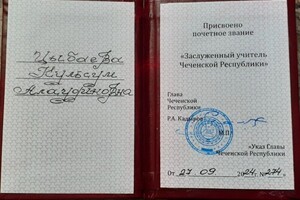 Цыбаева
Кульсум
Алаудиновна
Присвоено
почетное звание
«Заслуженный учитель
Чеченской Республики»
Глава
Чеченской
Республики
Р.А. Кадыров
М.П.
«Указ Главы
Чеченской Республики
От 27 09 2024г. №274